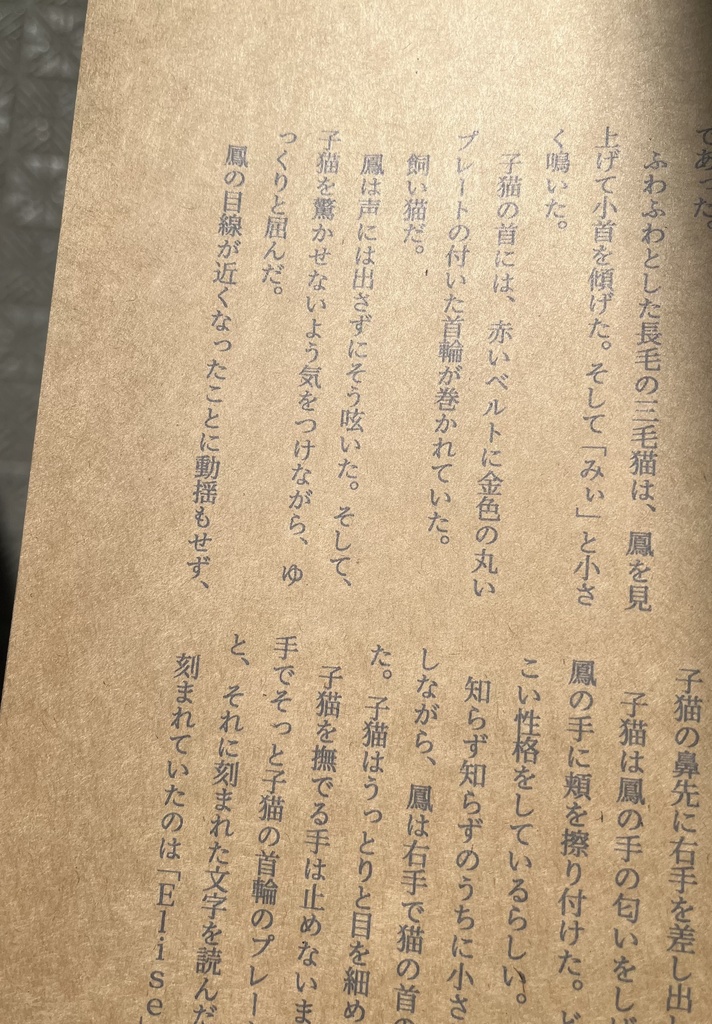 であった。
ふわふわとした長毛の三毛猫は、鳳を見
上げて小首を傾げた。そして「みぃ」と小さ
く鳴いた。
子猫の首には、赤いベルトに金色の丸い
プレートの付いた首輪が巻かれていた。
飼い猫だ。
鳳は声には出さずにそう呟いた。そして、
子猫を驚かせないよう気をつけながら、ゆ
っくりと屈んだ。
鳳の目線が近くなったことに動揺もせず、
子猫の鼻先に右手を差し出し
子猫は鳳の手の匂いをしば
鳳の手に頬を擦り付けた。
こい性格をしているらしい。
知らず知らずのうちに小さ
しながら、鳳は右手で猫の首の
た。子猫はうっとりと目を細め
子猫を撫でる手は止めないま
手でそっと子猫の首輪のプレー
と、それに刻まれた文字を読んだ
刻まれていたのは「Elise」